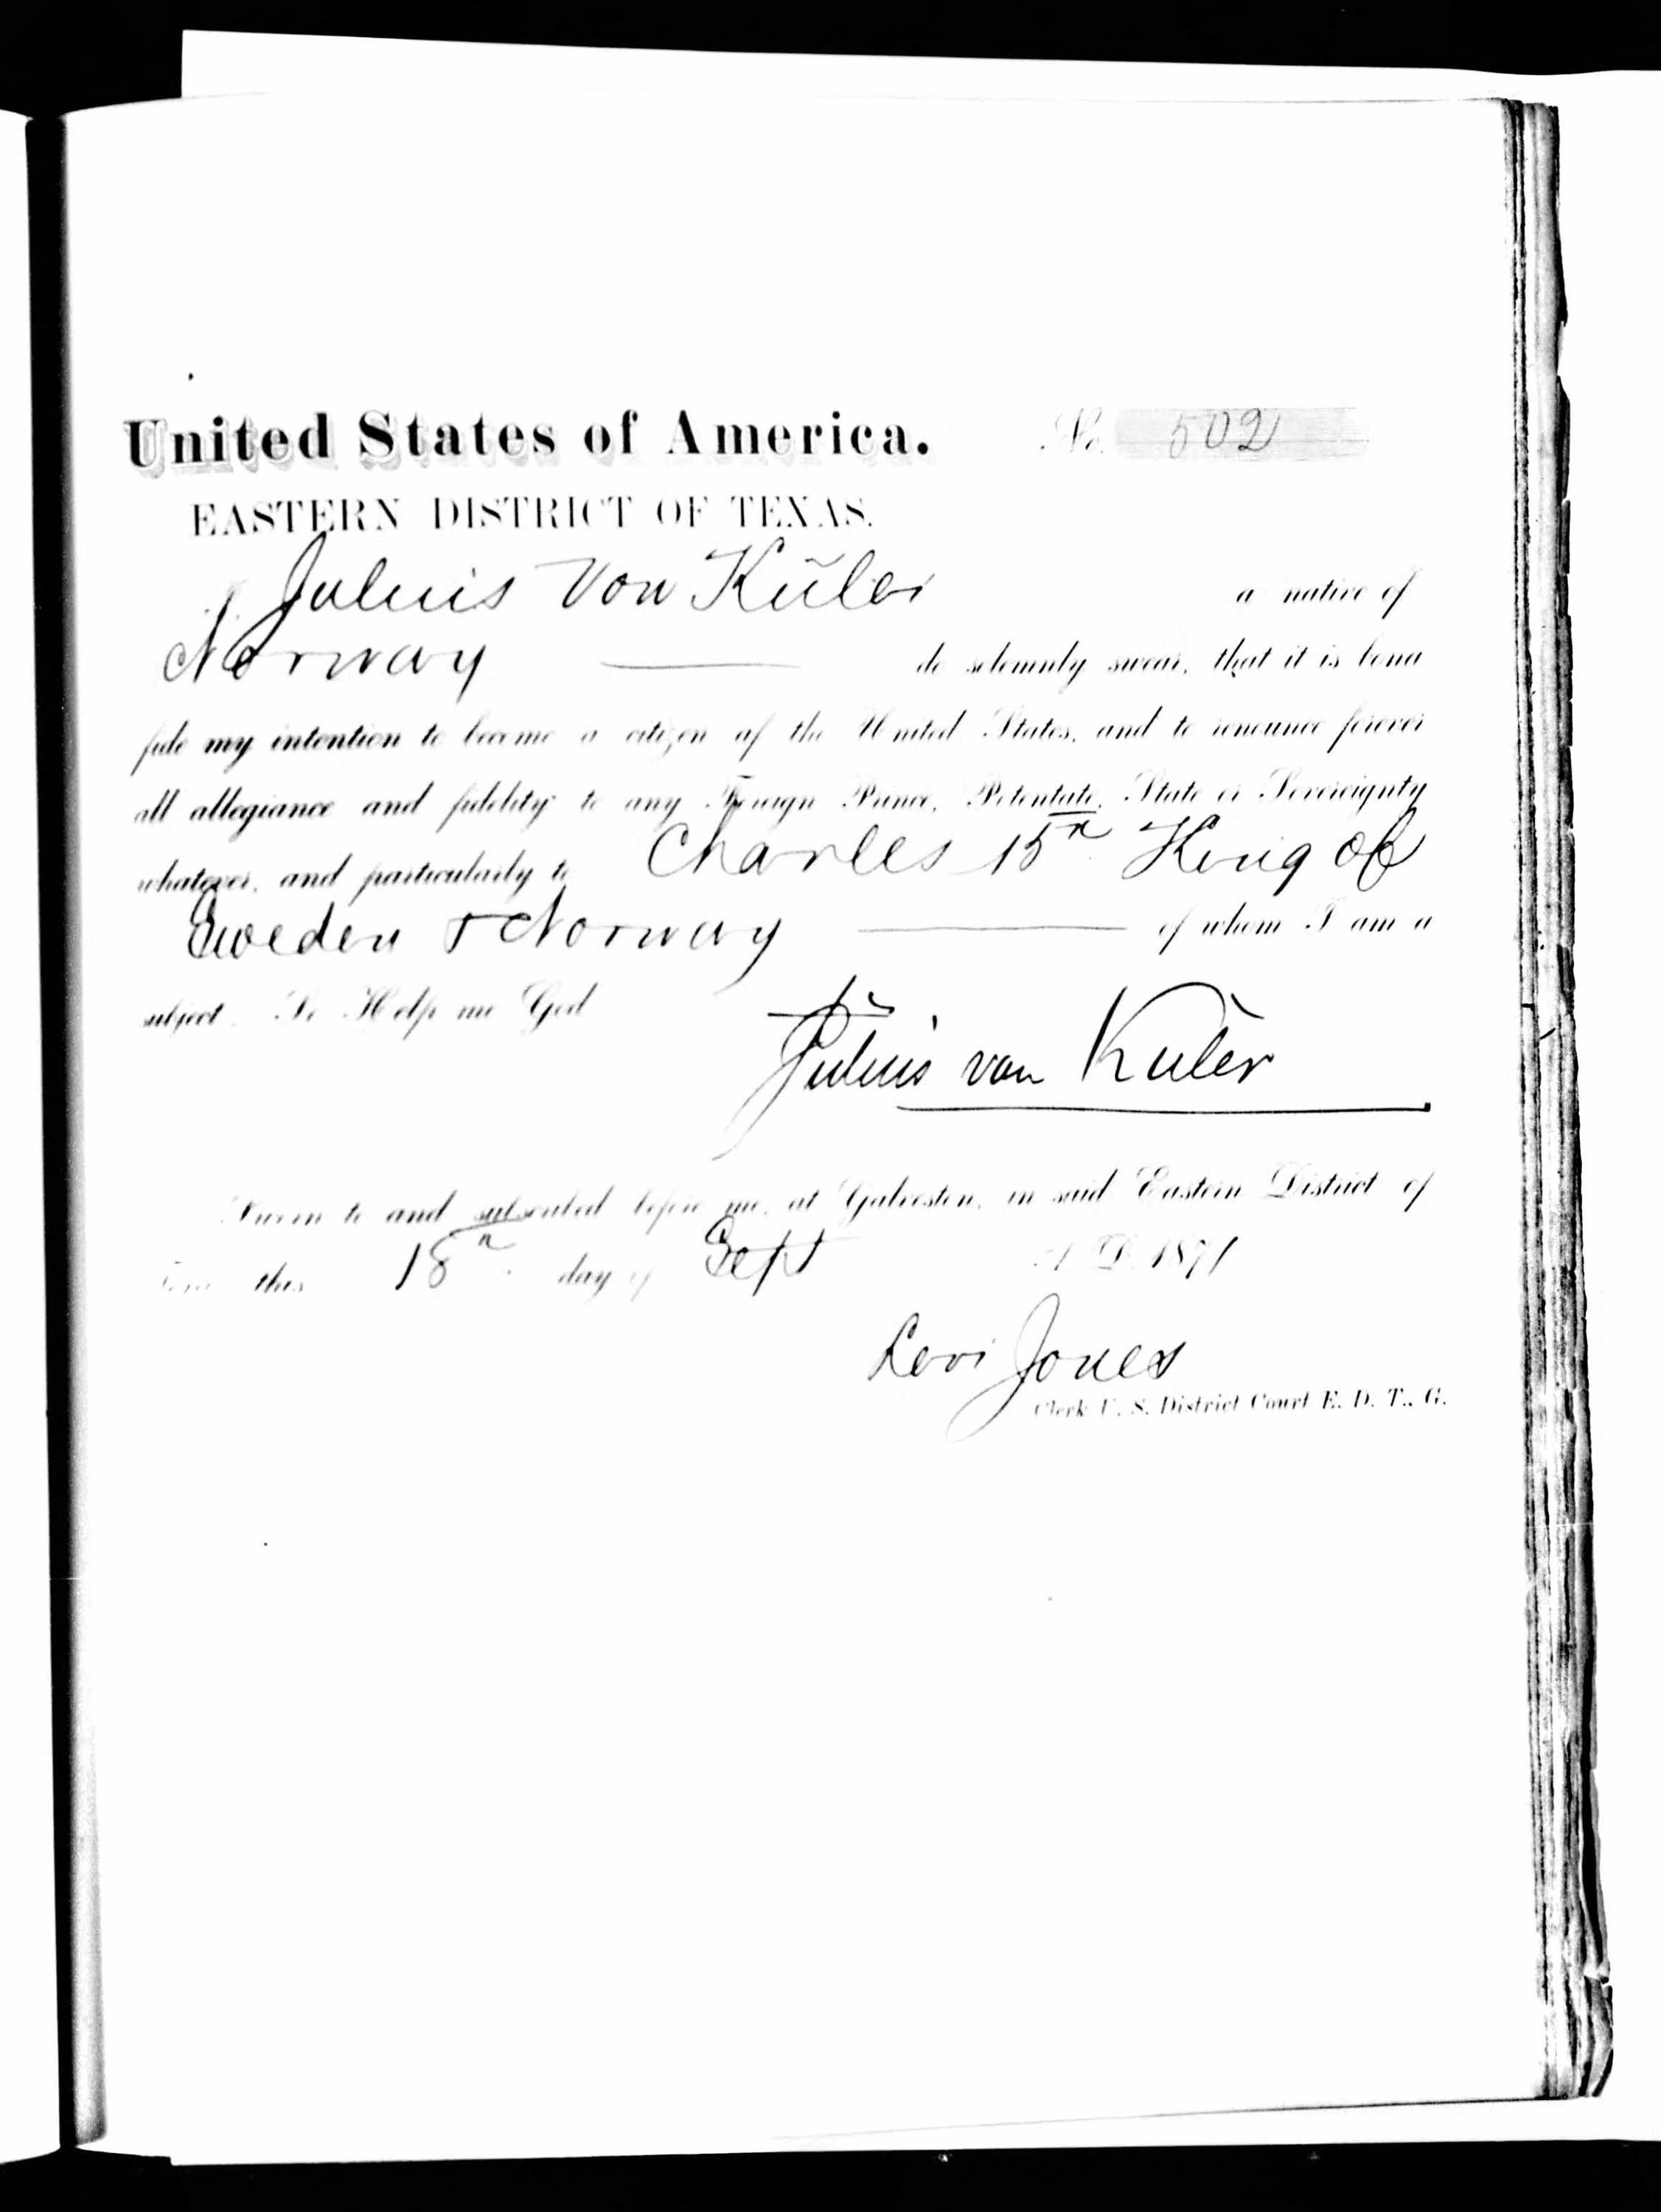 United States of America. No. 502
EASTERN DISTRICT OF TEXAS.
I, Julius Von Küler a native of
Norway do solemnly swear, that it is bona
fide my intention to become a citizen of the United States, and to renounce forever
all allegiance and fidelity to any Foreign Prince, Potentate, State or Sovereignty
whatever, and particularly to Charles 15th King of
Sweden & Norway of whom I am a
subject. So Help me God
Julius von Küler
Sworn to and subscribed before me, at Galveston, in said Eastern District of
Texas this 18th day of Sept A. D. 1871
Levi Jones
Clerk U. S. District Court E. D. T., G.